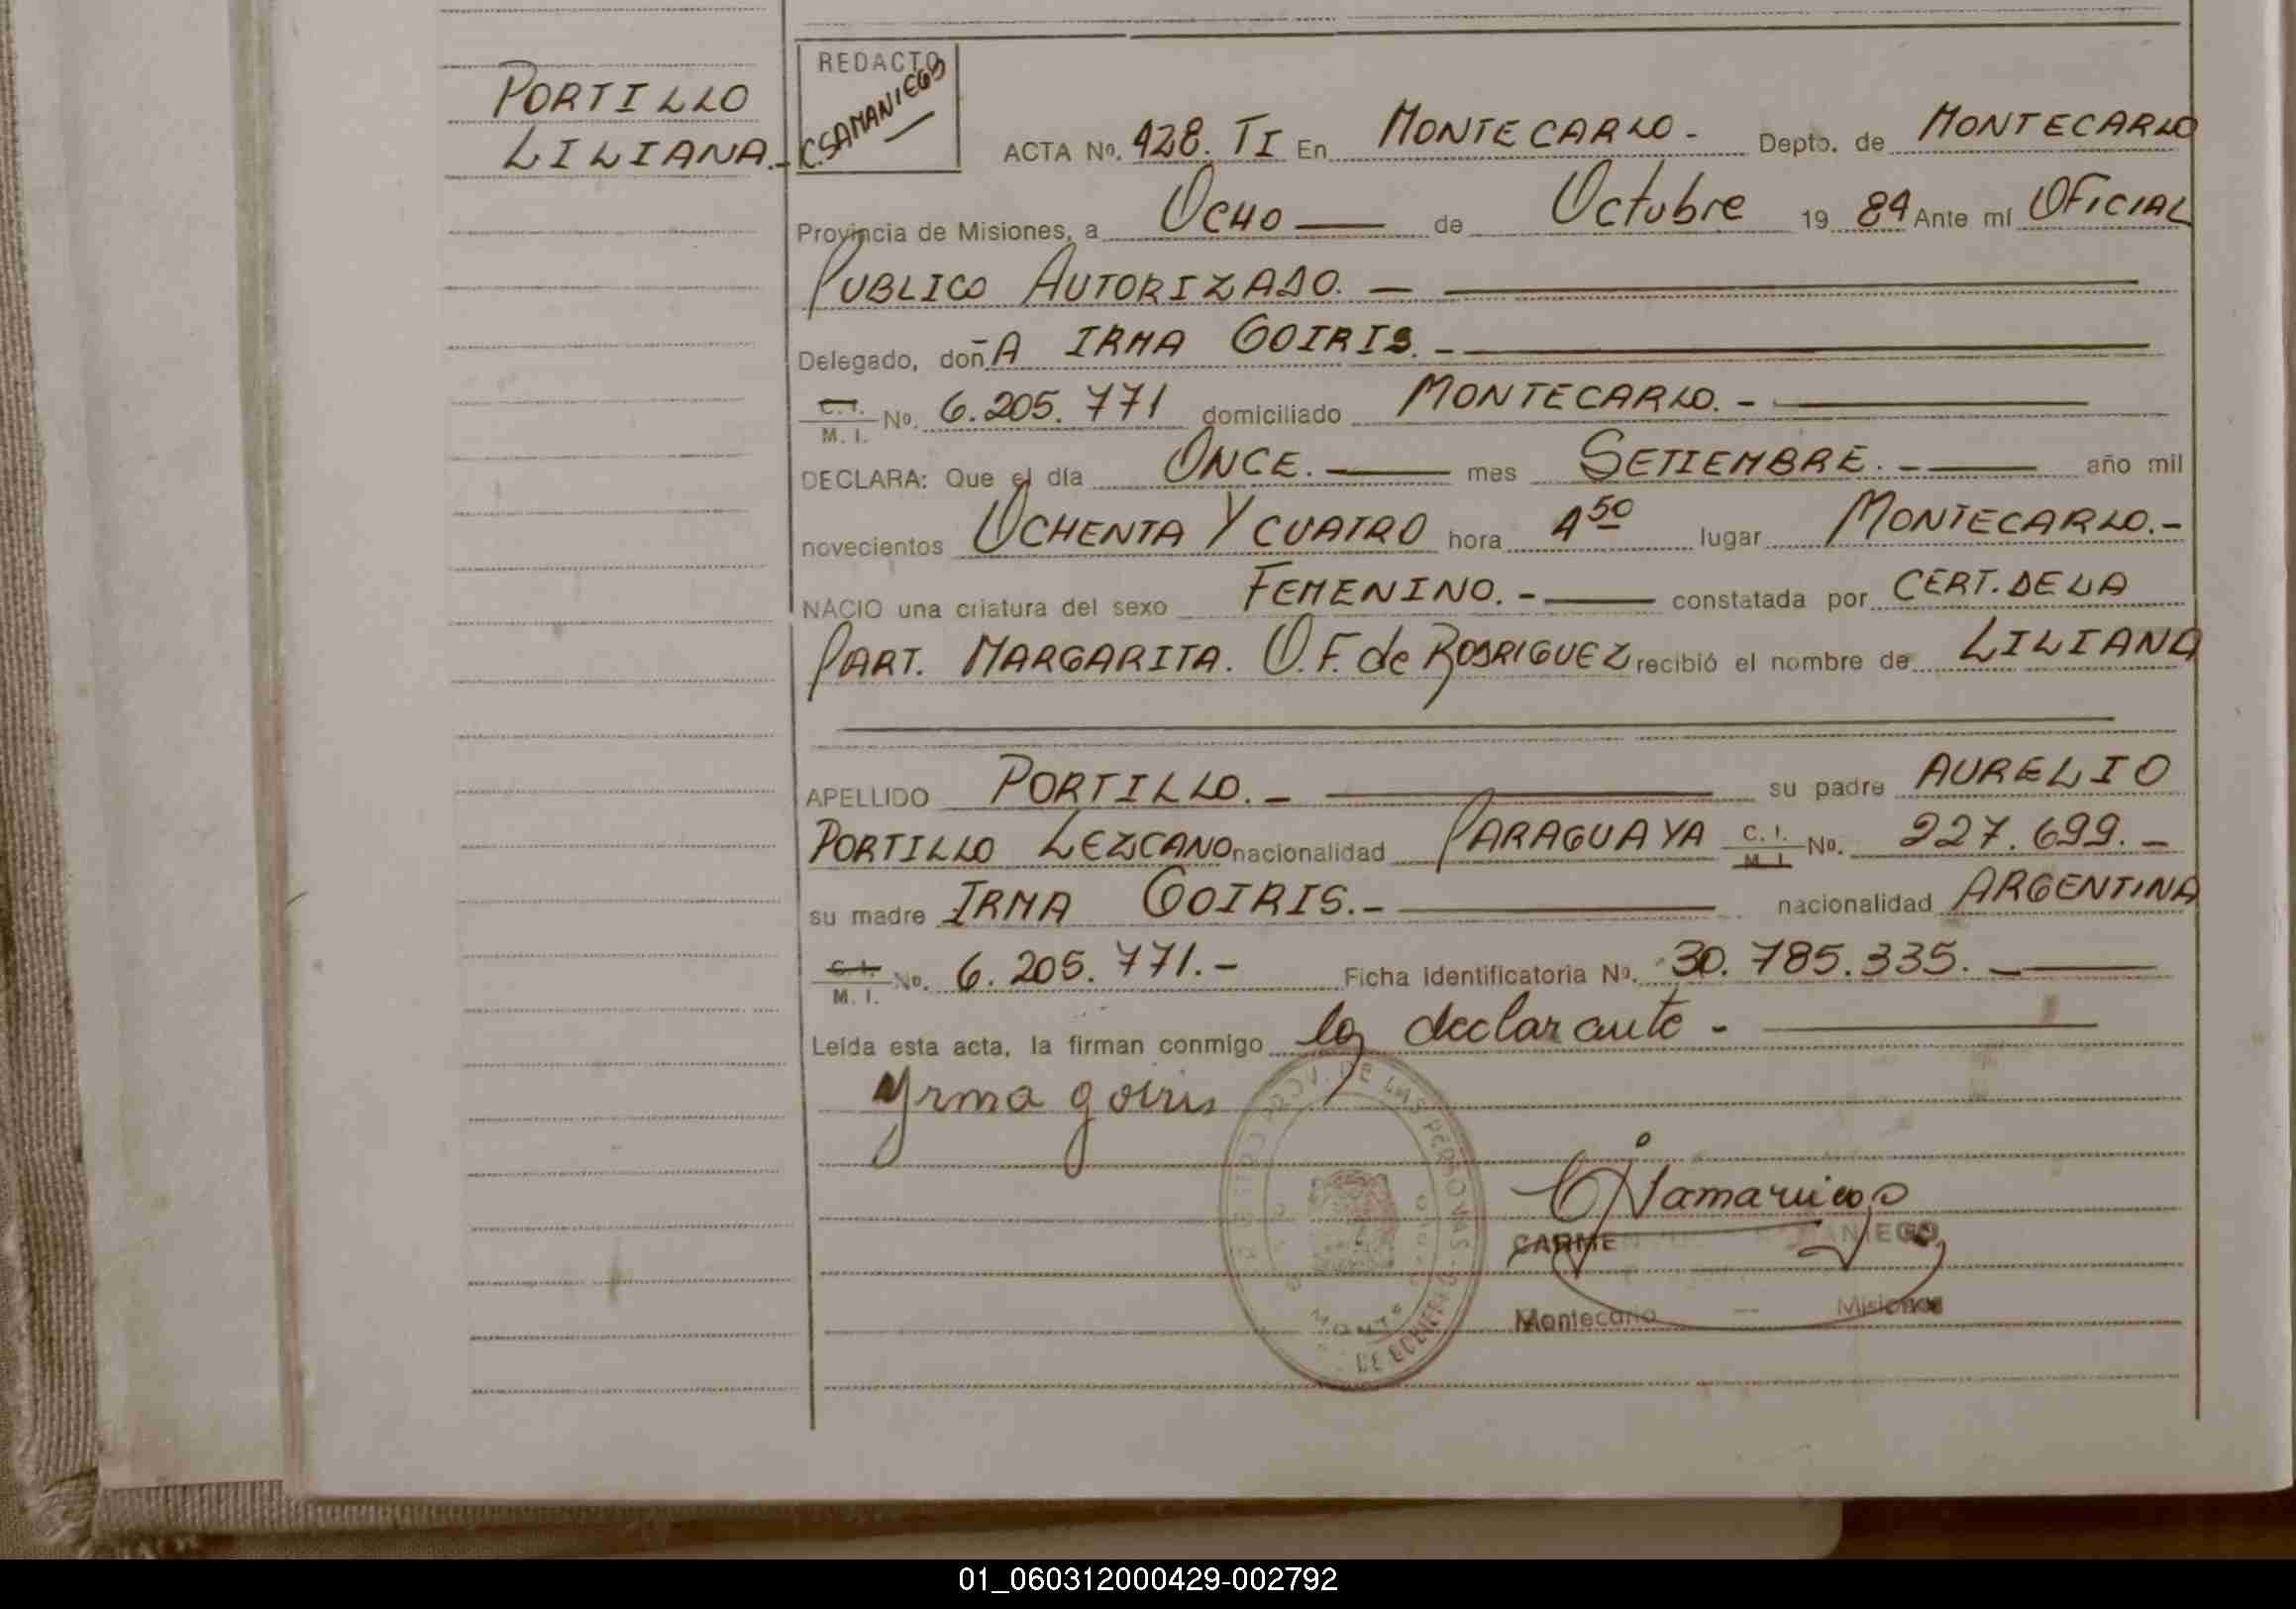 PORTILLO
LILIANA.-
REDACTO
C.SAMANIEGO
ACTA Nº. 428. TI En MONTECARLO - Depto. de MONTECARLO
Provincia de Misiones, a OCHO de Octubre 19 84 Ante mí OFICIAL
PUBLICO AUTORIZADO. -
Delegado, doñA IRMA GOIRIS. -
C. I. M. I. Nº. 6.205.771 domiciliado MONTECARLO. -
DECLARA: Que el día ONCE. mes SETIEMBRE. - año mil
novecientos OCHENTA Y CUATRO hora 4 50 lugar MONTECARLO.-
NACIO una criatura del sexo FEMENINO. - constatada por CERT. DE LA
PART. MARGARITA. O. F. de RODRIGUEZ recibió el nombre de LILIANA
APELLIDO PORTILLO. - su padre AURELIO
PORTILLO LEZCANO nacionalidad PARAGUAYA C. I. M. I. Nº. 227.699. -
su madre IRMA GOIRIS. - nacionalidad ARGENTINA
C. I. M. I. Nº. 6.205.771. - Ficha identificatoria Nº. 30.785.335. -
Leída esta acta, la firman conmigo la declarante -
Yrma goiris
PROV. DE LAS PERSONAS
CARMEN SAMANIEGO
Montecarlo - Misiones
01_060312000429-002792